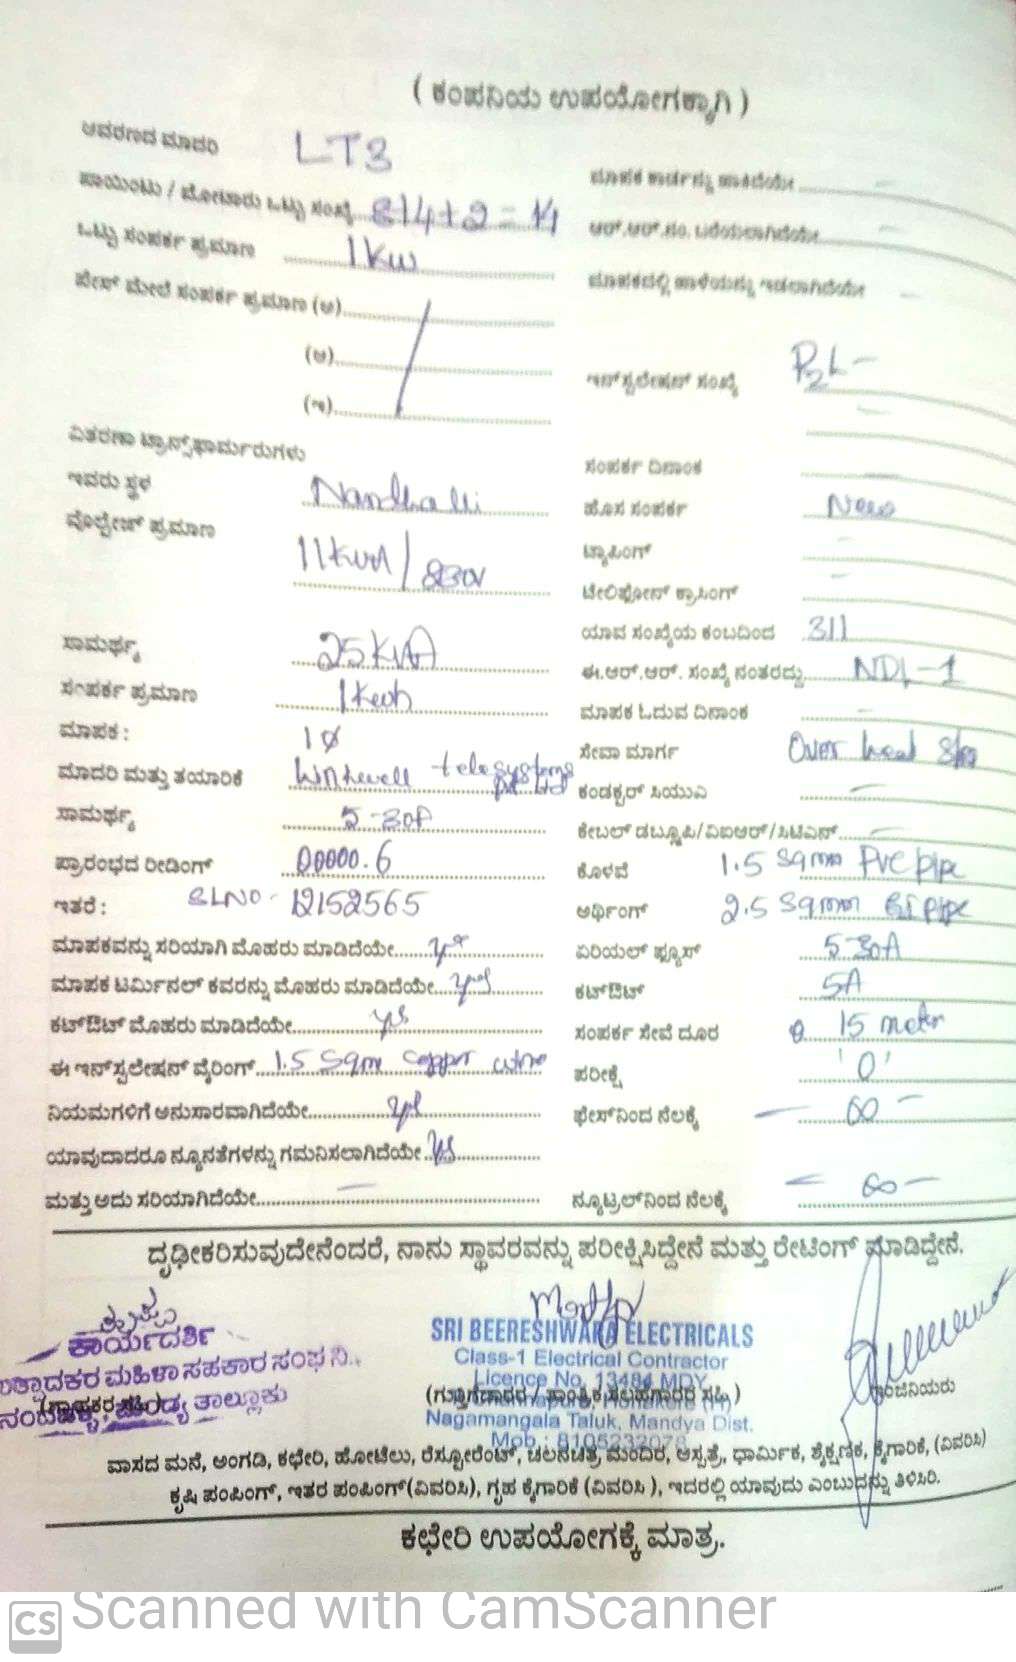 ( ಕಂಪನಿಯ ಉಪಯೋಗಕ್ಕಾಗಿ )
ಆವರಣದ ಮಾದರಿ LT3
ಪಾಯಿಂಟು / ಮೋಟಾರು ಒಟ್ಟು ಸಂಖ್ಯೆ 8+4+2 = 14
ಒಟ್ಟು ಸಂಪರ್ಕ ಪ್ರಮಾಣ 1 Kw
ಪೇಸ್ ಮೇಲೆ ಸಂಪರ್ಕ ಪ್ರಮಾಣ (ಅ)
(ಆ)
(ಇ)
ವಿತರಣಾ ಟ್ರಾನ್ಸ್‌ಫಾರ್ಮರುಗಳು
ಇವರು ಸ್ಥಳ Nandhalli
ವೊಲ್ಟೇಜ್ ಪ್ರಮಾಣ 11
ಸಾಮರ್ಥ್ಯ 25 KVA
ಸಂಪರ್ಕ ಪ್ರಮಾಣ
ಮಾಪಕ : 1Ø
ಮಾದರಿ ಮತ್ತು ತಯಾರಿಕೆ telesystems
ಸಾಮರ್ಥ್ಯ 5-30A
ಪ್ರಾರಂಭದ ರೀಡಿಂಗ್ 00000.6
ಇತರೆ : SLNO - 12152565
ಮಾಪಕವನ್ನು ಸರಿಯಾಗಿ ಮೊಹರು ಮಾಡಿದೆಯೇ yes
ಮಾಪಕ ಟರ್ಮಿನಲ್ ಕವರನ್ನು ಮೊಹರು ಮಾಡಿದೆಯೇ yes
ಕಟ್‌ಔಟ್ ಮೊಹರು ಮಾಡಿದೆಯೇ yes
ಈ ಇನ್‌ಸ್ಟಲೇಷನ್ ವೈರಿಂಗ್ 1.5 Sqm copper wire
ನಿಯಮಗಳಿಗೆ ಅನುಸಾರವಾಗಿದೆಯೇ yes
ಯಾವುದಾದರೂ ನ್ಯೂನತೆಗಳನ್ನು ಗಮನಿಸಲಾಗಿದೆಯೇ yes
ಮತ್ತು ಅದು ಸರಿಯಾಗಿದೆಯೇ
ಇನ್‌ಸ್ಟಲೇಷನ್ ಸಂಖ್ಯೆ P2L -
ಸಂಪರ್ಕ ದಿನಾಂಕ
ಹೊಸ ಸಂಪರ್ಕ New
ಟ್ಯಾಪಿಂಗ್
ಟೆಲಿಫೋನ್ ಕ್ರಾಸಿಂಗ್
ಯಾವ ಸಂಖ್ಯೆಯ ಕಂಬದಿಂದ 311
ಈ.ಆರ್.ಆರ್. ಸಂಖ್ಯೆ ನಂತರದ್ದು NDL-1
ಮಾಪಕ ಓದುವ ದಿನಾಂಕ
ಸೇವಾ ಮಾರ್ಗ Over head
ಕಂಡಕ್ಟರ್ ಸಿಯುವಿ
ಕೇಬಲ್ ಡಬ್ಲ್ಯೂಪಿ/ವಿಐಆರ್/ಸಿಟಿಎಸ್
ಕೊಳವೆ 1.5 Sqmm PVC pipe
ಅರ್ಥಿಂಗ್ 2.5 Sqmm GI pipe
ಏರಿಯಲ್ ಫ್ಯೂಸ್ 5-30A
ಕಟ್‌ಔಟ್ 5A
ಸಂಪರ್ಕ ಸೇವೆ ದೂರ 15 meter
ಪರೀಕ್ಷೆ '0'
ಫೇಸ್‌ನಿಂದ ನೆಲಕ್ಕೆ - ∞ -
ನ್ಯೂಟ್ರಲ್‌ನಿಂದ ನೆಲಕ್ಕೆ - ∞ -
ದೃಢೀಕರಿಸುವುದೇನೆಂದರೆ, ನಾನು ಸ್ಥಾವರವನ್ನು ಪರೀಕ್ಷಿಸಿದ್ದೇನೆ ಮತ್ತು ರೇಟಿಂಗ್ ಮಾಡಿದ್ದೇನೆ.
ಕಾರ್ಯದರ್ಶಿ
ಮಹಿಳಾ ಸಹಕಾರ ಸಂಘ ನಿ.,
ತಾಲ್ಲೂಕು
SRI BEERESHWARA ELECTRICALS
Class-1 Electrical Contractor
Licence No. 13484 MDY
Nagamangala Taluk, Mandya Dist.
Mob : 8105232078
ವಾಸದ ಮನೆ, ಅಂಗಡಿ, ಕಛೇರಿ, ಹೋಟೆಲು, ರೆಸ್ಟೋರೆಂಟ್, ಚಲನಚಿತ್ರ ಮಂದಿರ, ಆಸ್ಪತ್ರೆ, ಧಾರ್ಮಿಕ, ಶೈಕ್ಷಣಿಕ, ಕೈಗಾರಿಕೆ, (ವಿವರಿಸಿ)
ಕೃಷಿ ಪಂಪಿಂಗ್, ಇತರ ಪಂಪಿಂಗ್(ವಿವರಿಸಿ), ಗೃಹ ಕೈಗಾರಿಕೆ (ವಿವರಿಸಿ), ಇದರಲ್ಲಿ ಯಾವುದು ಎಂಬುದನ್ನು ತಿಳಿಸಿರಿ.
ಕಛೇರಿ ಉಪಯೋಗಕ್ಕೆ ಮಾತ್ರ.
CS Scanned with CamScanner